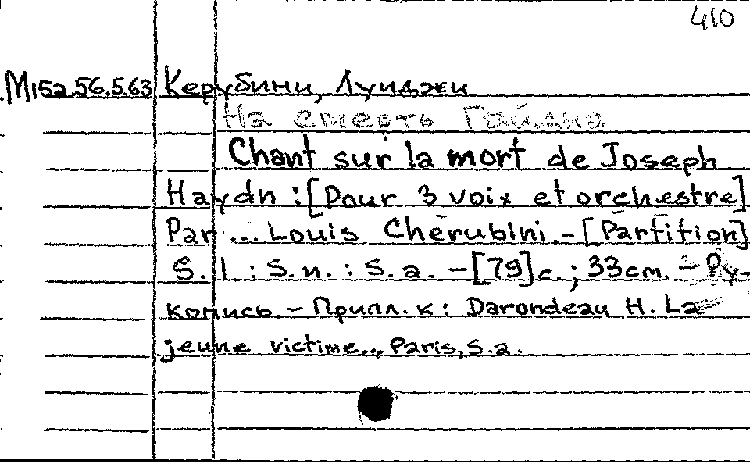 410
М152.56.563 Керубини, Луиджи
На смерть Гайдна
Chant sur la mort de Joseph
Haydn : [Pour 3 voix et orchestre]
Par ... Louis Cherubini. - [Partition]
S. l. : S. n. : S. a. - [79] с. ; 33 cm. - Ру-
копись. - Прилл. к : Darondeau H. La
jeune victime.., Paris, s.a.